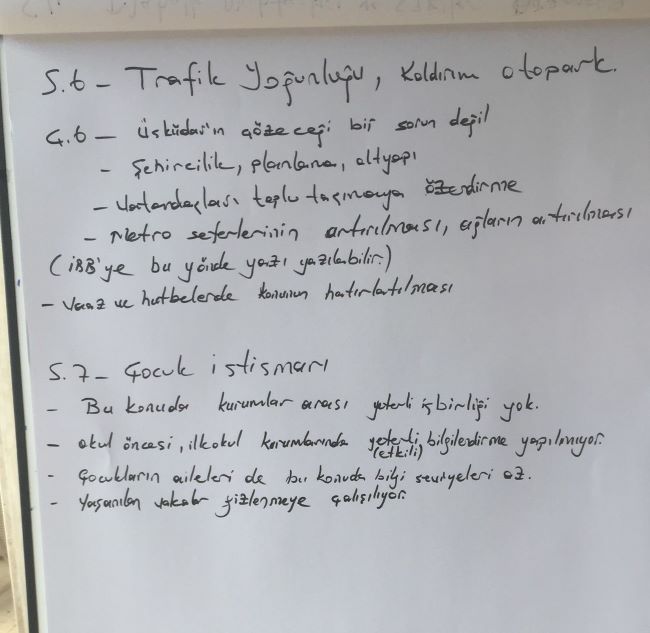 S.6 – Trafik Yoğunluğu, Kaldırım otopark.
Ç.6 – Üsküdar'ın çözeceği bir sorun değil
- Şehircilik, planlama, altyapı
- Vatandaşları toplu taşımaya özendirme
- Metro seferlerinin artırılması, ağların artırılması
(İBB'ye bu yönde yazı yazılabilir.)
- Vaaz ve hutbelerde konunun hatırlatılması
S.7 – Çocuk istismarı
- Bu konuda kurumlar arası yeterli işbirliği yok.
- okul öncesi, ilkokul kurumlarında yeterli (etkili) bilgilendirme yapılmıyor.
- Çocukların aileleri de bu konuda bilgi seviyeleri az.
- Yaşanılan vakalar gizlenmeye çalışılıyor.